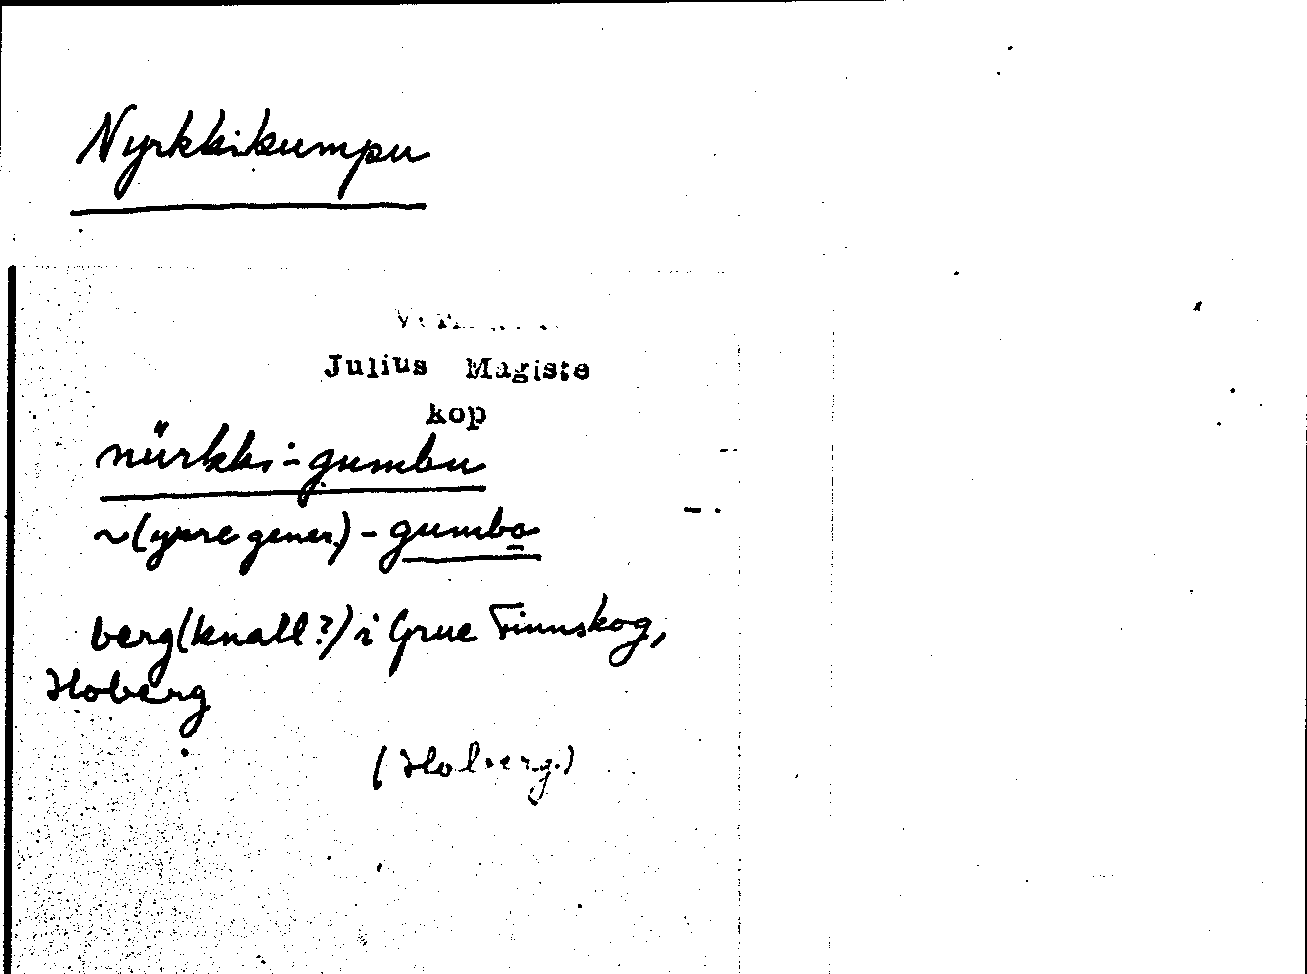 Nyrkkikumpu
Julius Magiste
kop
nürkki-gumbu
~(yngre gener.) - gumbo
berg(knall?) i Grue Finnskog,
Hoberg
(Hoberg.)